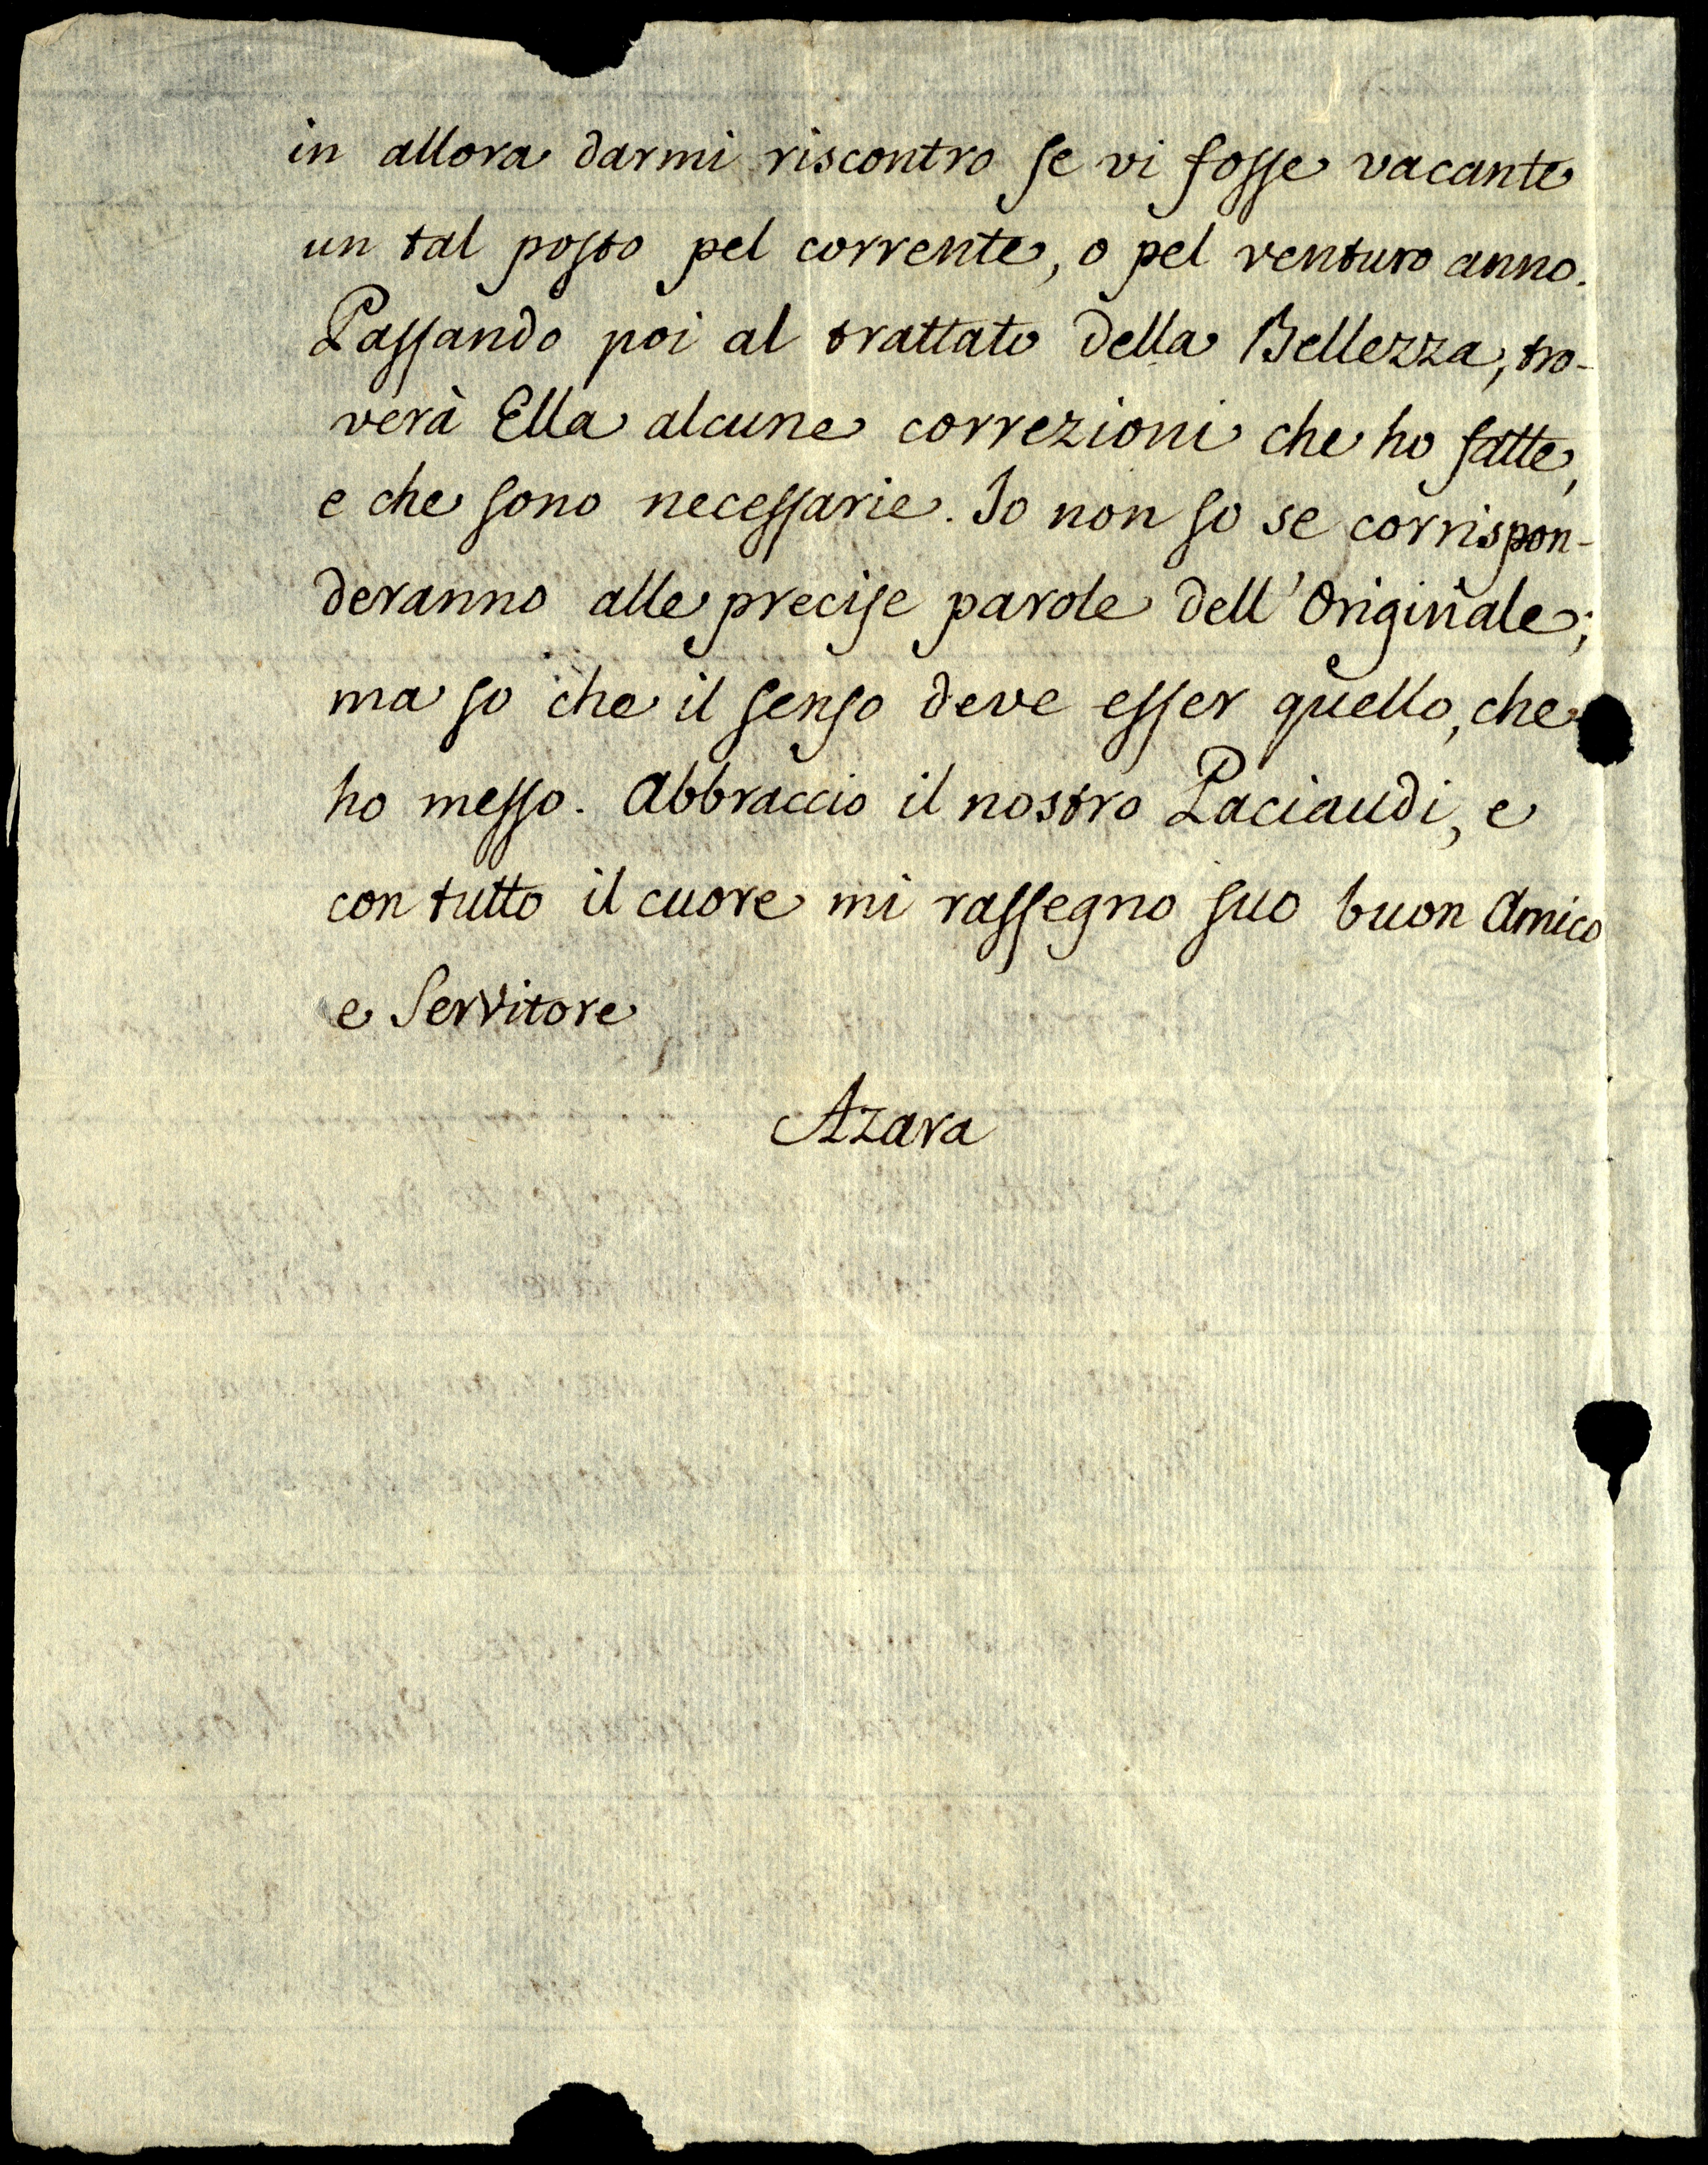 in allora darmi riscontro se vi fosse vacante
un tal posto pel corrente, o pel venturo anno.
Passando poi al trattato della Bellezza, tro-
verà Ella alcune correzioni che ho fatte,
e che sono necessarie. Io non so se corrispon-
deranno alle precise parole dell'Originale;
ma so che il senso deve esser quello, che
ho messo. Abbraccio il nostro Paciaudi, e
con tutto il cuore mi rassegno suo buon Amico
e Servitore
Azara